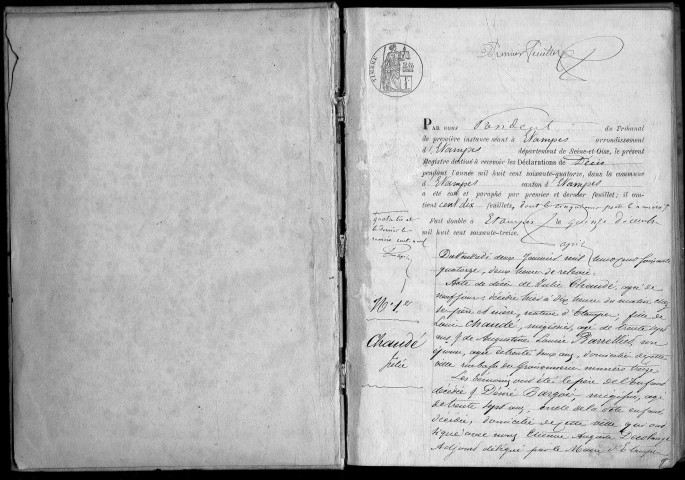 TIMBRE
Premier feuillet
PAR nous Président du Tribunal
de première instance séant à Etampes arrondissement
d'Etampes département de Seine-et-Oise, le présent
Registre destiné à recevoir les Déclarations de Décès
pendant l'année mil huit cent soixante-quatorze, dans la commune
d'Etampes canton d'Etampes
a été coté et paraphé par premier et dernier feuillet; il con-
tient cent dix feuillets,
Fait double à Etampes, le quinze décembre
mil huit cent soixante-treize.
Du Vendredi deux Janvier mil huit cent soixante
quatorze, deux heures de relevée.
Acte de décès de Julie Chaudé, agée de
neuf jours, décédée hier à dix heures du matin chez
ses père et mère, native d'Etampes, fille de
Louis Chaudé, mégissier, agé de trente sept
ans, & de Augustine Louise son
épouse, agée de trente deux ans, domiciliés de cette
ville numéro treize.
Les témoins ont été le père de l'enfant
décédée & Désiré mégissier, agé
de trente sept ans, oncle de la dite enfant
décédée, domiciliés de cette ville qui ont
signé avec nous Etienne Auguste
Adjoint délégué par le Maire d'Etampes
N° 1er
Chaudé
Julie